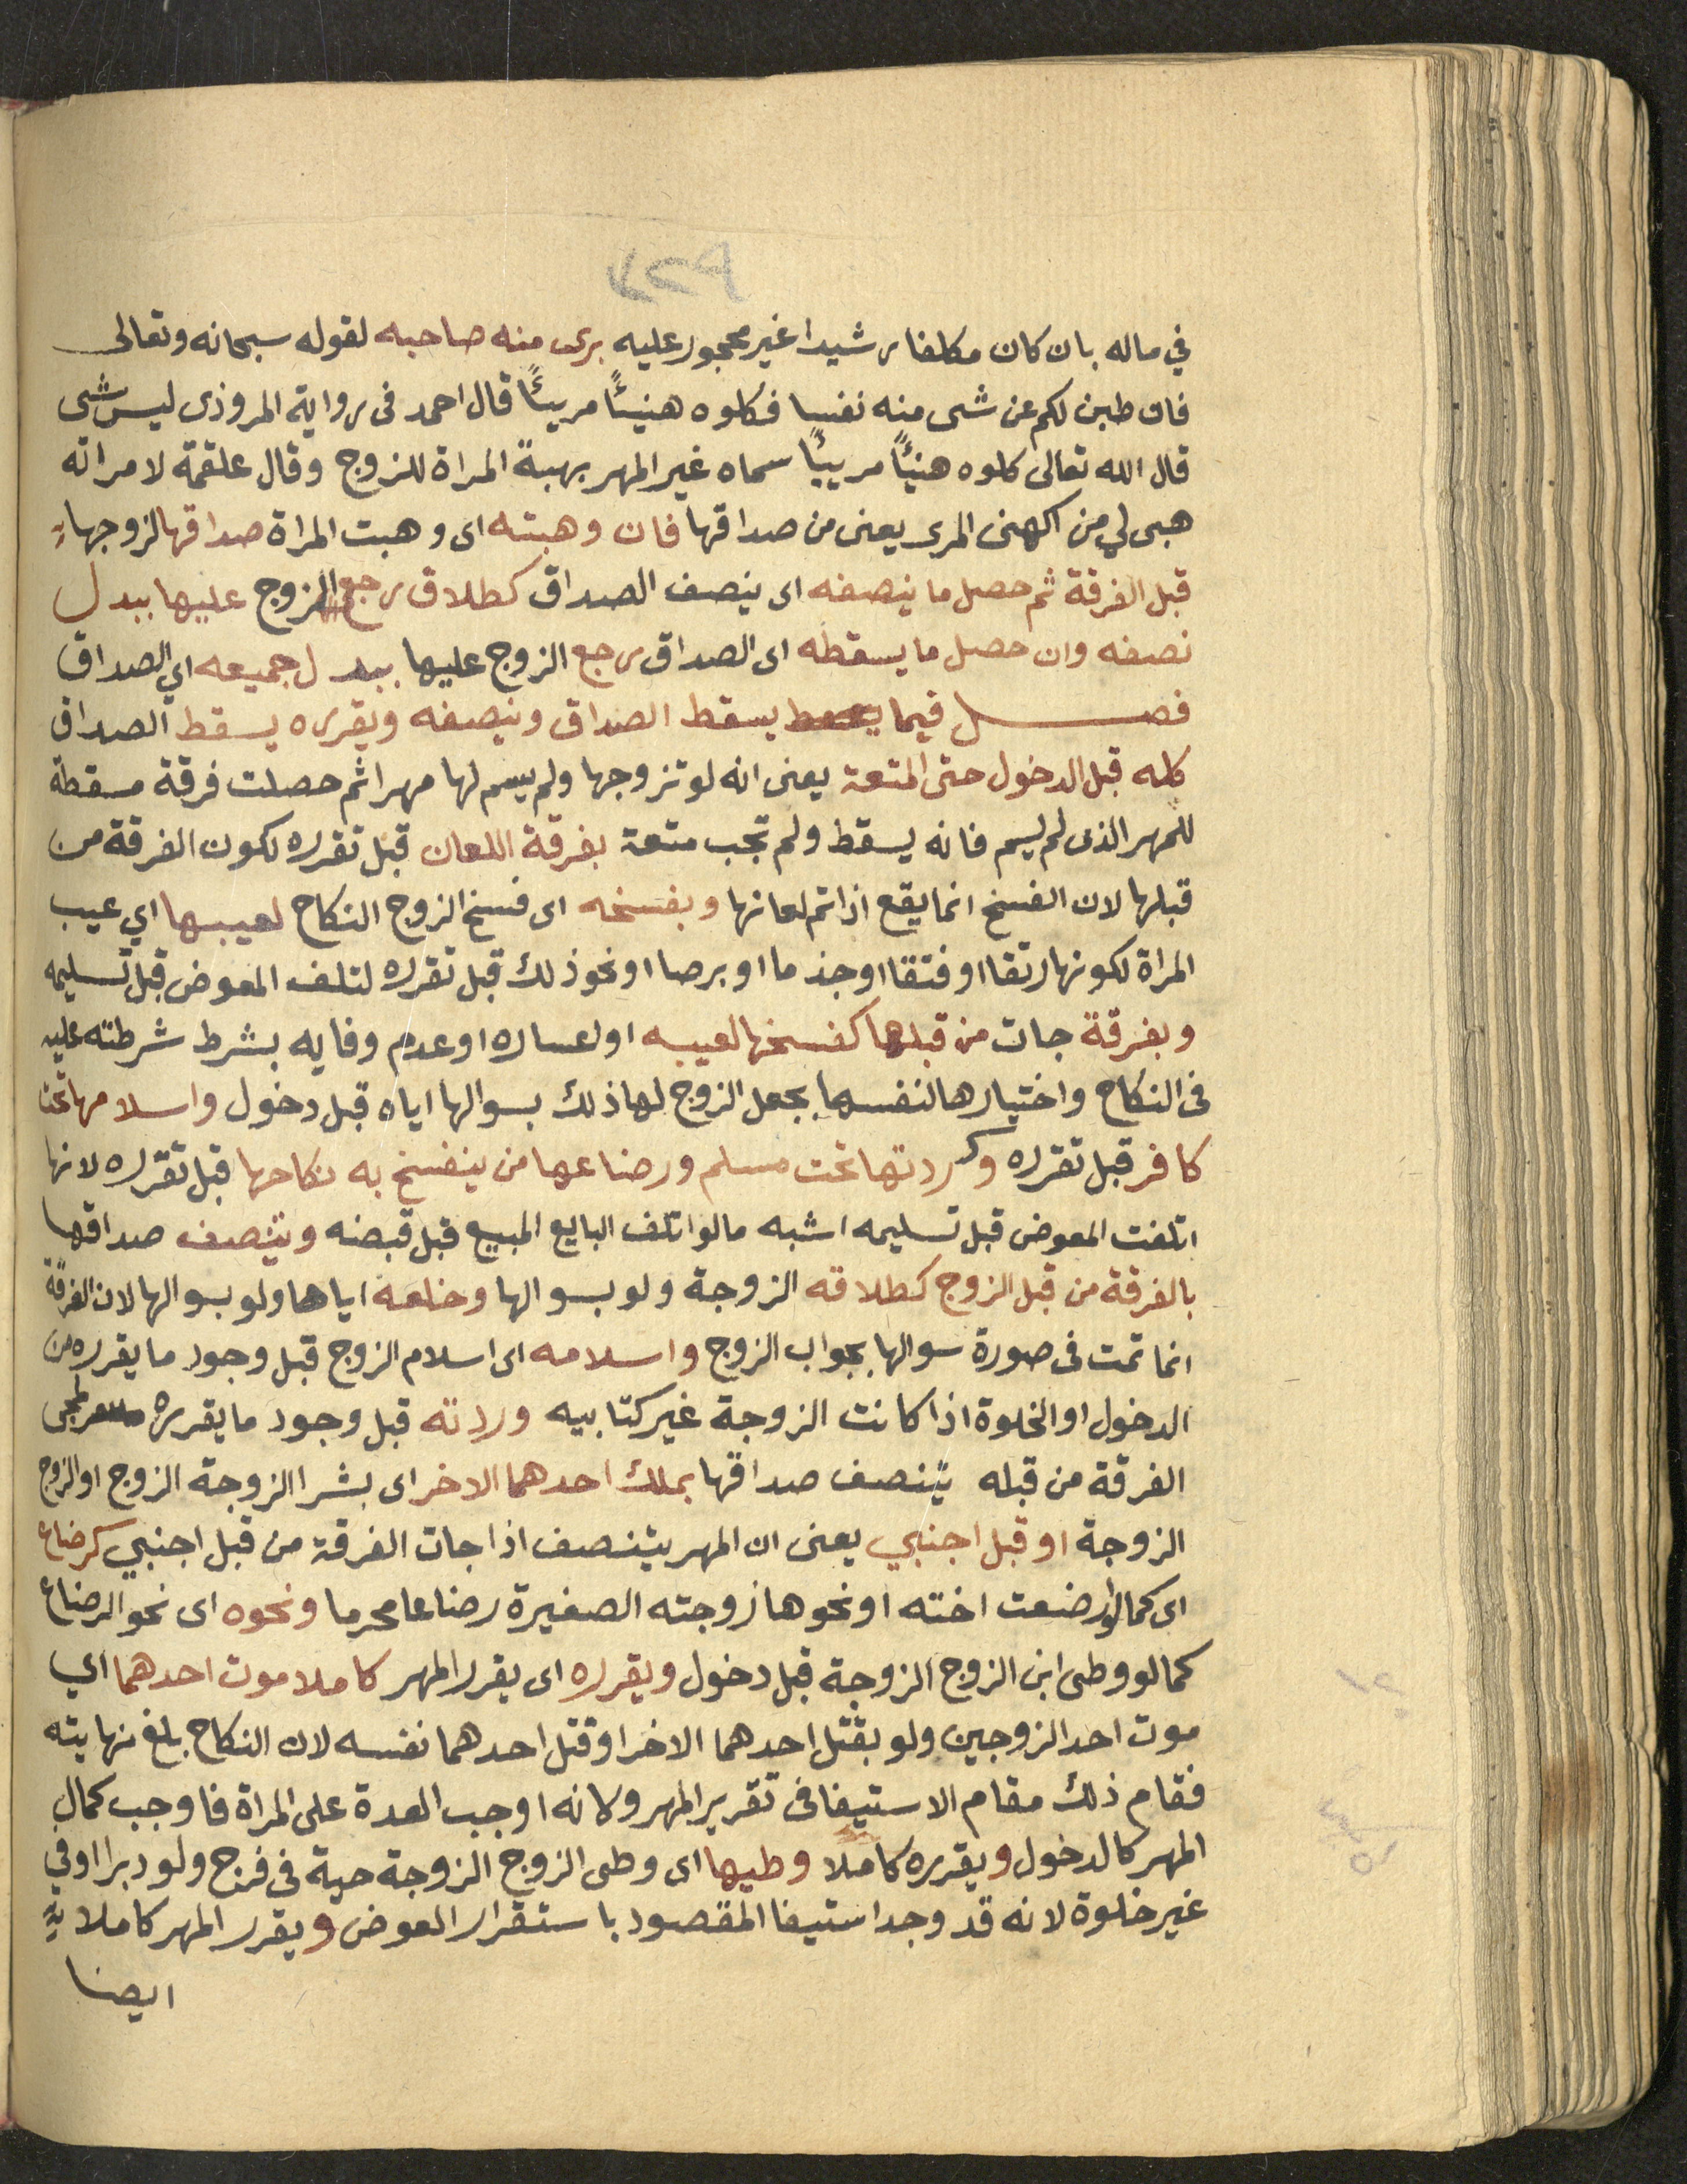 في ماله بان كان مكلفا رشيدا غير محجور عليه برى منه صاحبه لقوله سبحانه وتعالى
فان طبن لكم عن شى منه نفسا فكلوه هنيئًا مريئًا قال احمد فى رواية المروذى ليس شى
قال الله تعالى كلوه هنيًا مرييًا سماه غير المهر بهبة المراة للزوج وقال علقمة لامراته
هبى لي من الهنى المرى يعنى من صداقها فان وهبته اى وهبت المراة صداقها لزوجها
قبل الفرقة ثم حصل ما ينصفه اى ينصف الصداق كطلاق رجع الزوج عليها ببدل
نصفه وان حصل ما يسقطه اى الصداق رجع الزوج عليها ببدل جميعه اي الصداق
فصل فيما يسقط الصداق وينصفه ويقرره يسقط الصداق
كله قبل الدخول حتى المتعة يعنى انه لو تزوجها ولم يسم لها مهرا ثم حصلت فرقة مسقطة
للمهر الذى لم ليسم فانه يسقط ولم تجب متعة بفرقة اللعان قبل تقرره لكون الفرقة من
قبلها لان الفسخ انما يقع اذا تم لعانها وبفسخه اى فسخ الزوج النكاح لعيبها اي عيب
المراة لكونها رتقا او فتقا او جذما او برصا او نحو ذلك قبل تقرره لتلف المعوض قبل تسليمه
وبفرقة جات من قبلها كفسخها لعيبه او لعساره او عدم وفايه بشرط شرطته عليه
فى النكاح واختيارها لنفسها بجعل الزوج لها ذلك بسوالها اياه قبل دخول واسلامها تحت
كافر قبل تقرره وكردتها تحت مسلم ورضاعها من ينفسخ به نكاحها قبل تقرره لانها
اتلفت المعوض قبل تسليمه اشبه ما لو اتلف البايع المبيع قبل قبضه ويتنصف صداقها
بالفرقة من قبل الزوج كطلاقه الزوجة ولو بسوالها وخلعه اياها ولو بسوالها لان الفرقة
انما تمت فى صورة سوالها بجواب الزوج واسلامه اى اسلام الزوج قبل وجود ما يقرره من
الدخول او الخلوة اذا كانت الزوجة غير كتابيه وردته قبل وجود ما يقرره لمجى
الفرقة من قبله يتنصف صداقها بملك احدهما الاخر اى بشرا الزوجة الزوج او الزوج
الزوجة او قبل اجنبي يعنى ان المهر يتنصف اذا جات الفرقة من قبل اجنبي كرضاع
اى كما لو ارضعت اخته او نحوها زوجته الصغيرة رضاعا محرما ونحوه اى نحو الرضاع
كما لو وطى ابن الزوج الزوجة قبل دخول ويقرره اى يقرر المهر كاملا موت احدهما اي
موت احد الزوجين ولو بقتل احدهما الاخر او قتل احدهما نفسه لان النكاح بلغ نهايته
فقام ذلك مقام الاستيفا فى تقرير المهر ولانه اوجب العدة على المراة فاوجب كمال
المهر كالدخول ويقرره كاملا وطيها اى وطى الزوج الزوجة حية فى فرج ولو دبرا او في
غير خلوة لانه قد وجد استيفا المقصود باستقرار العوض ويقرر المهر كاملا
ايضا